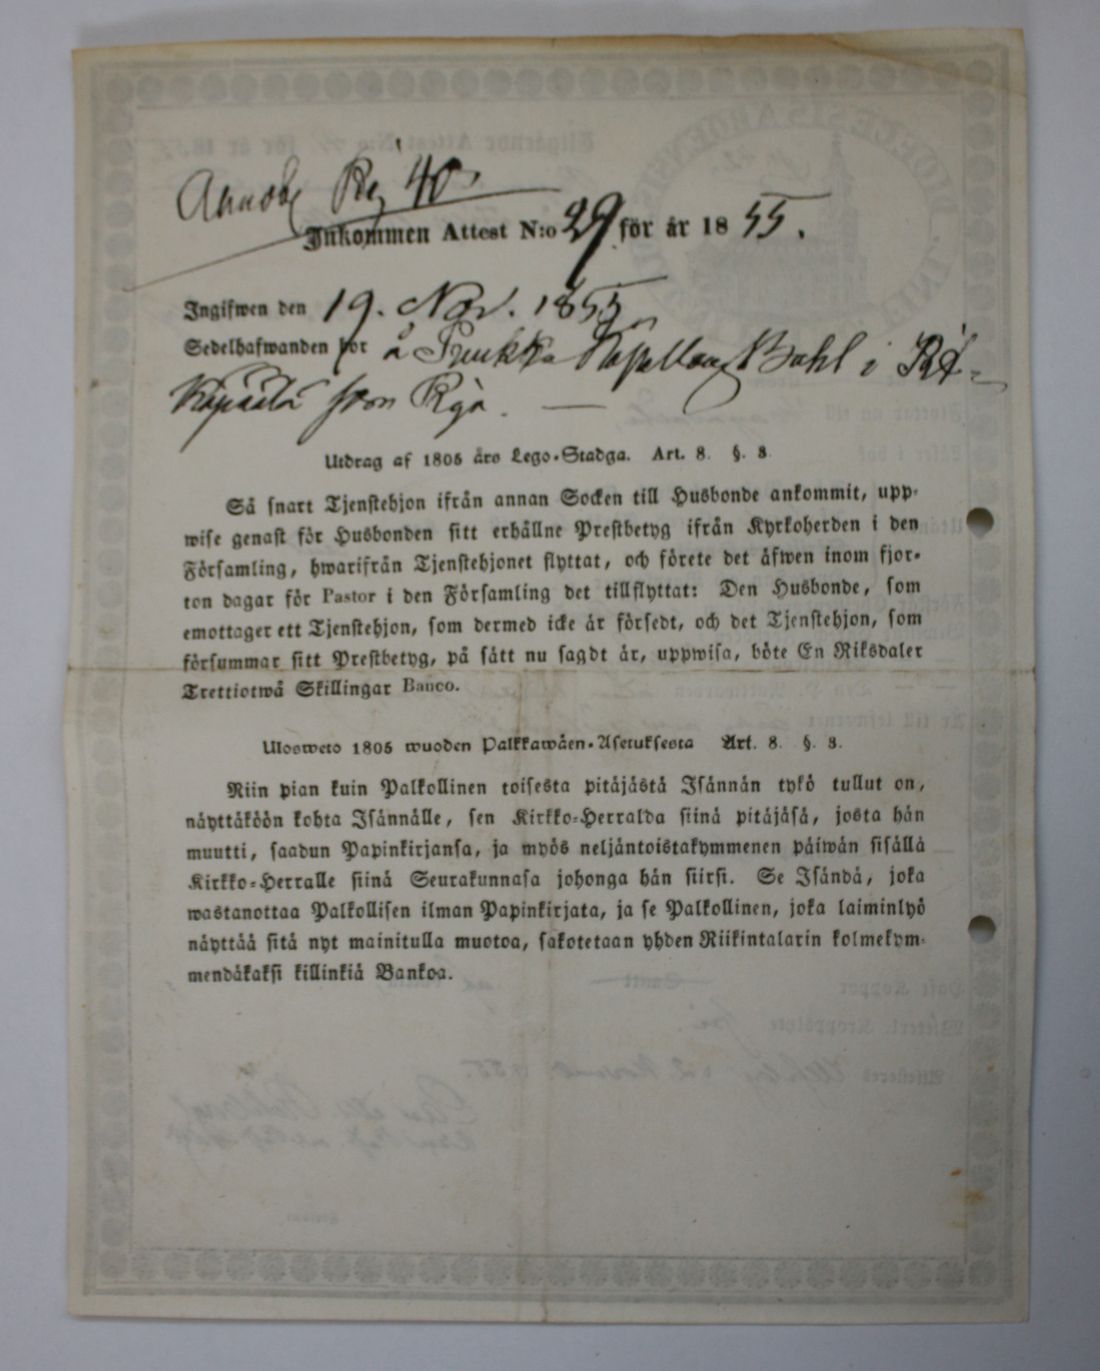 40.
Inkommen Attest N:o 29 för år 1855.
Ingifwen den 19. Nov. 1855
Sedelhafwanden bor å i
från
Utdrag af 1805 års Lego-Stadga. Art. 8. §. 8.
Så snart Tjenstehjon ifrån annan Socken till Husbonde ankommit, upp-
wise genast för Husbonden sitt erhållne Prestbetyg ifrån Kyrkoherden i den
Församling, hwarifrån Tjenstehjonet flyttat, och förete det äfwen inom fjor-
ton dagar för Pastor i den Församling det tillflyttat: Den Husbonde, som
emottager ett Tjenstehjon, som dermed icke är försedt, och det Tjenstehjon, som
försummar sitt Prestbetyg, på sätt nu sagdt är, uppwisa, böte En Riksdaler
Trettiotwå Skillingar Banco.
Ulosweto 1805 wuoden Palkkawäen-Asetuksesta Art. 8. §. 8.
Niin pian kuin Palkollinen toisesta pitäjästä Isännän tykö tullut on,
näyttäköön kohta Isännälle, sen Kirkko-Herralda siinä pitäjäsä, josta hän
muutti, saadun Papinkirjansa, ja myös neljäntoistakymmenen päiwän sisällä
Kirkko-Herralle siinä Seurakunnasa johonga hän siirsi. Se Isändä, joka
wastanottaa Palkollisen ilman Papinkirjata, ja se Palkollinen, joka laiminlyö
näyttää sitä nyt mainitulla muotoa, sakotetaan yhden Riikintalarin kolmekym-
mendäkaksi killinkiä Bankoa.